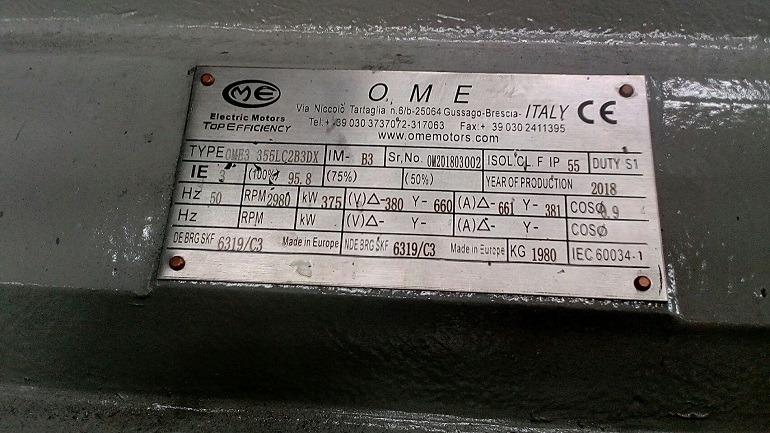 OME
O M E
Electric Motors
TOP EFFICIENCY
Via Niccolò Tartaglia n.6/b-25064 Gussago-Brescia- ITALY CE
Tel:+ 39 030 3737072-317063 Fax:+ 39 030 2411395
www.omemotors.com
TYPE OME3 355LC2B3DX IM- B3 Sr,No. OM201803002 ISOL.CL. F IP 55 DUTY S1
IE 3 (100%) 95.8 (75%) (50%) YEAR OF PRODUCTION 2018
Hz 50 RPM 2980 kW 375 (V)Δ-380 Y- 660 (A)Δ- 661 Y- 381 COSØ 0.9
Hz RPM kW (V)Δ- Y- (A)Δ- Y- COSØ
DE BRG SKF 6319/C3 Made in Europe NDE BRG SKF 6319/C3 Made in Europe KG 1980 IEC 60034-1